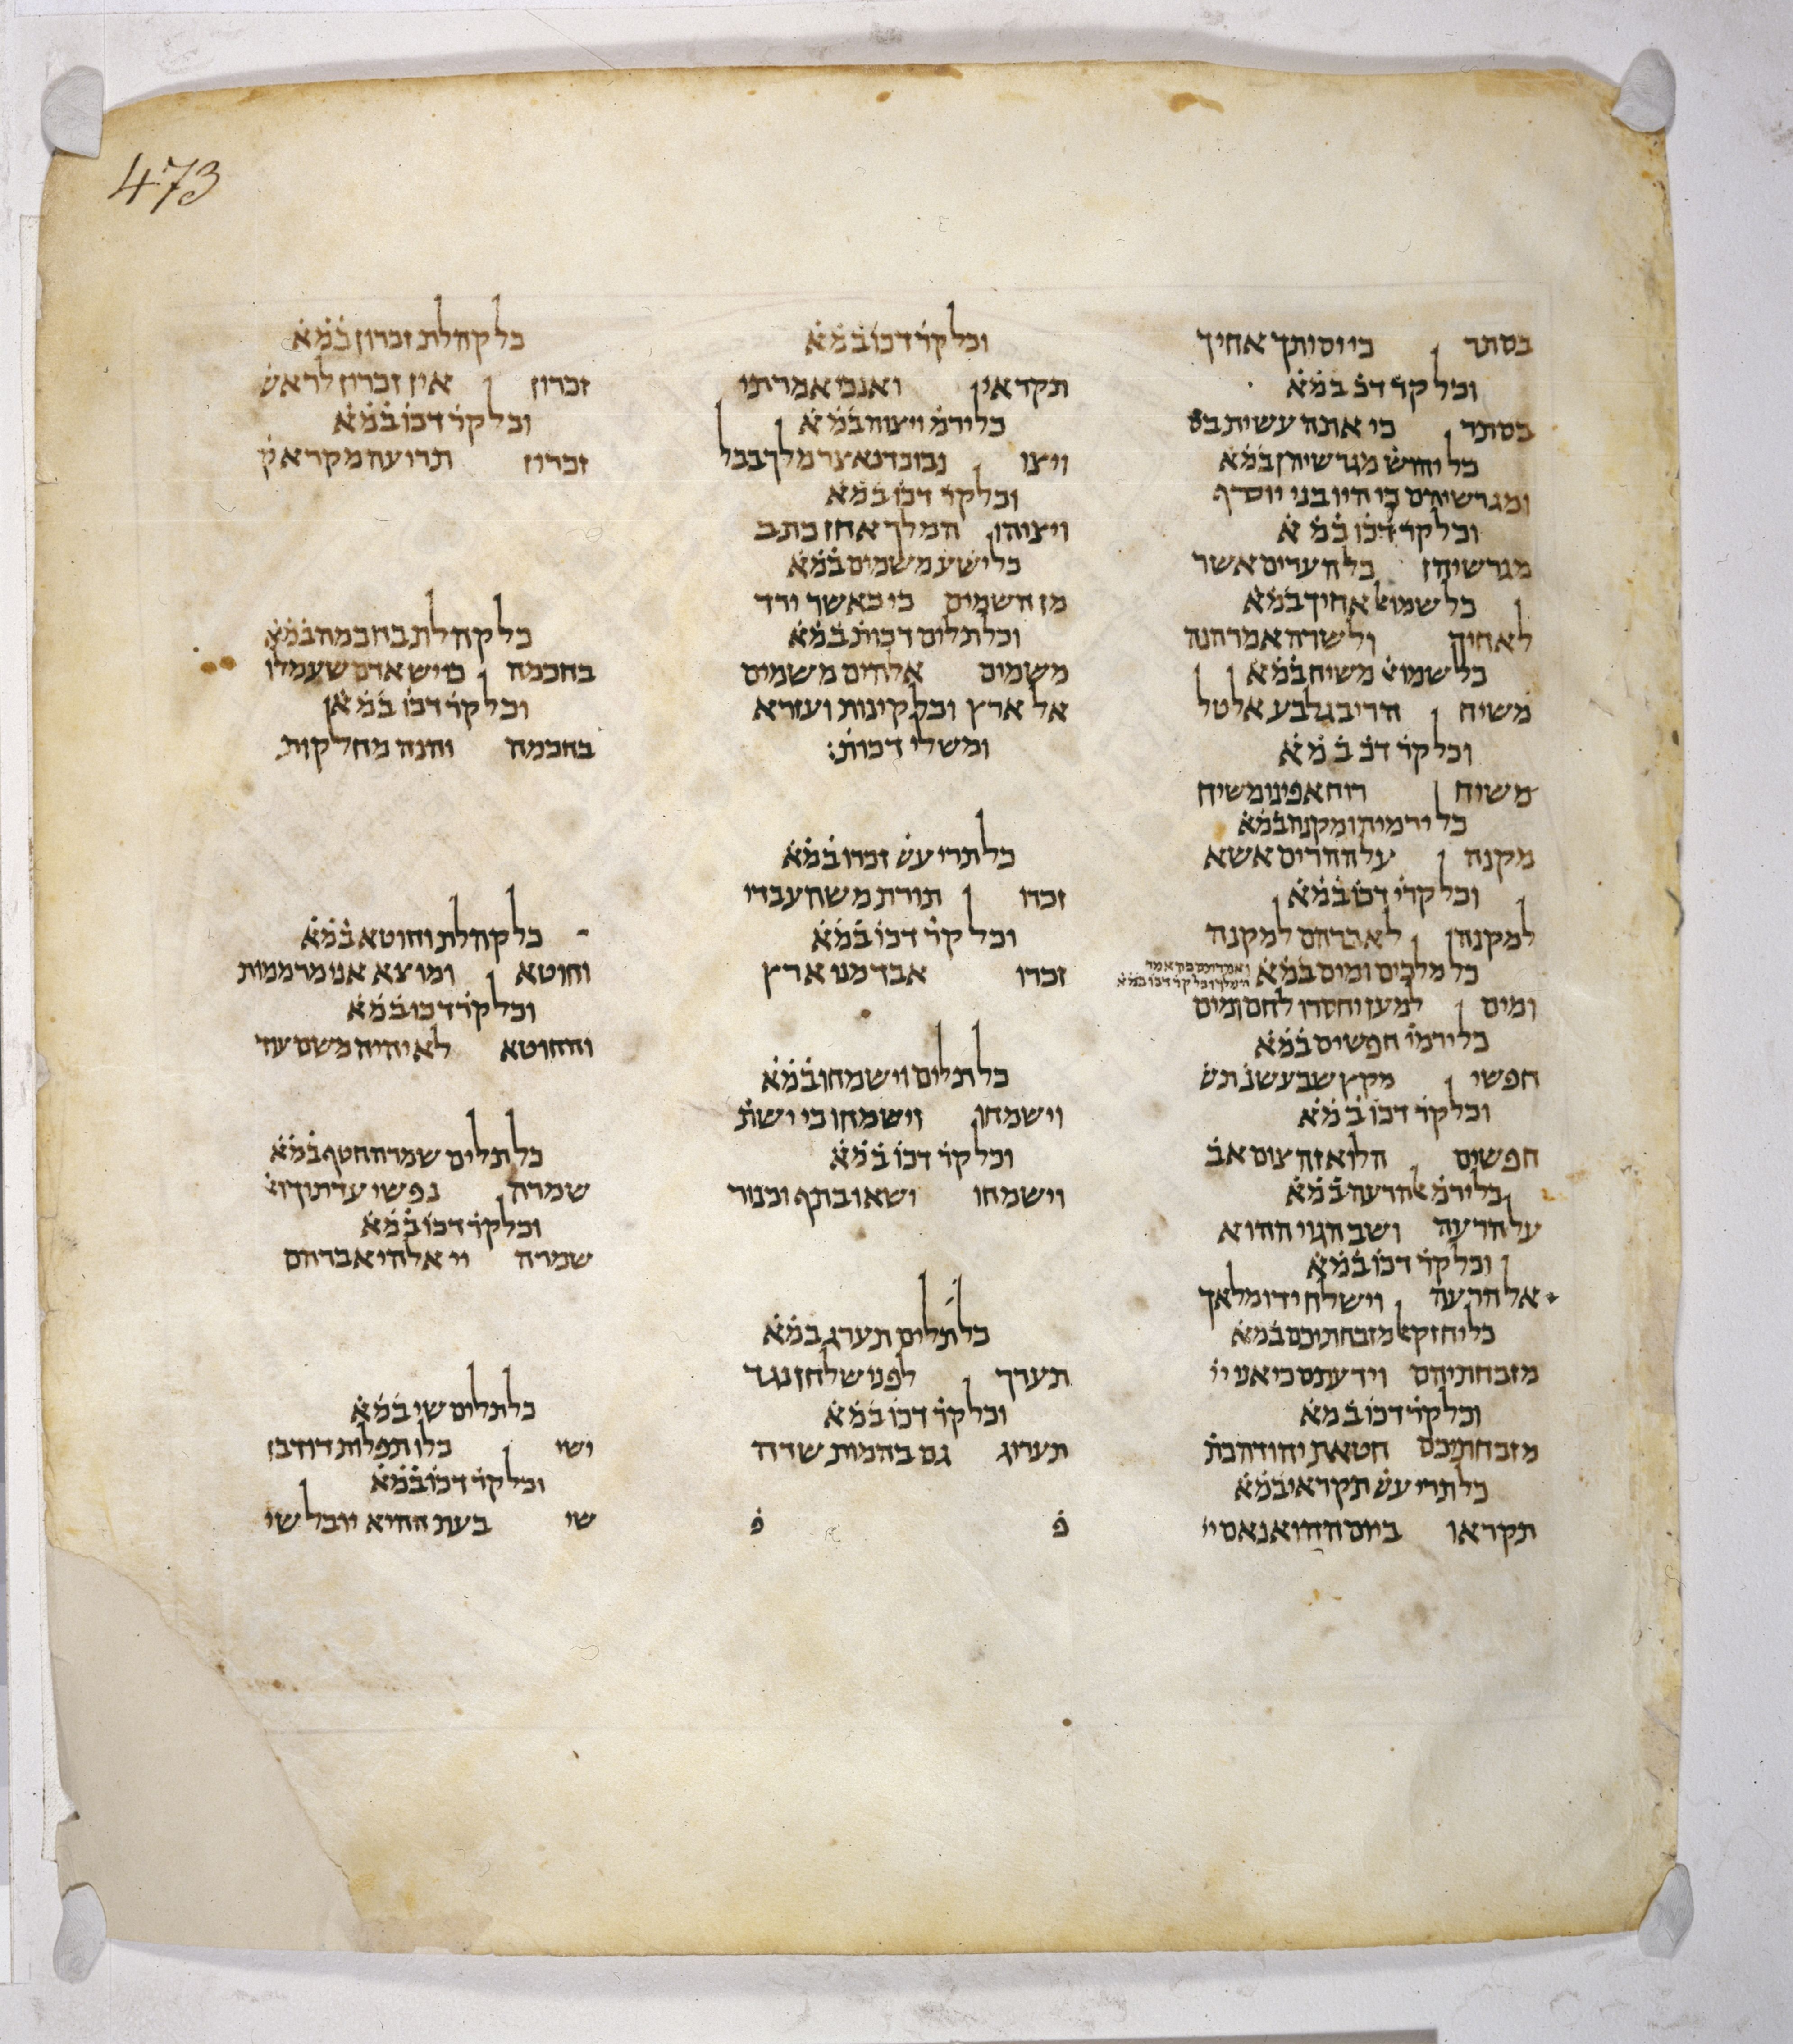 473
בסתר כי יסיתך אחיך
וכל קר̇ דכ̇ ב̇מ̇א̇
בסתר כי אתה עשית בס
כל יהוש̇ מגרשיהן ב̇מ̇א̇
ומגרשיהם כי היו בני יוסף
וכל קר̇ דכו̇ ב̇מ̇א̇
מגרשיהן כל הערים אשר
כל שמוא̇ אחיך ב̇מ̇א̇
לאחיך ולשרה אמר הנה
כל שמוא̇ משיח ב̇מ̇א̇
משיח הרי בגלבע אל טל
וכל קר̇ דכ̇ ב̇מ̇א̇
משיח רוח אפינו משיח
כל ירמיה ומקנה ב̇מ̇א̇
מקנה על ההרים אשא
וכל קרי̇ דכו̇ ב̇מ̇א̇
למקנה לאברהם למקנה
כל מלכים ומים ב̇מ̇א̇
ומים למען יחסרו לחם ומים
כל ירמי̇ חפשים ב̇מ̇א̇
חפשי מקץ שבע שנ̇ תש̇
וכל קר̇ דכו̇ ב̇מ̇א̇
חפשים הלוא זה צום אב̇
כל ירמ̇ אל הרעה ב̇מ̇א̇
על הרעה ושב הגוי ההוא
וכל קר̇ דכו̇ ב̇מ̇א̇
אל הרעה וישלח ידו מלאך
כל יחזקא̇ מזבחתיכם ב̇מ̇א̇
מזבחתיהם וידעתם כי אני יי̇
וכל קר̇ דכו̇ ב̇מ̇א̇
מזבחתיכם חטאת יהודה כת̇
כל תרי עש̇ תקראי ב̇מ̇א̇
תקראו ביום ההוא נאם יי̇
וכל קר̇ דכו̇ ב̇מ̇א̇
תקראי ואנכי אמרתי
כל ירמ̇ ויצוה ב̇מ̇א̇
ויצו נבוכדראצר מלך בבל
וכל קר̇ דכו̇ ב̇מ̇א̇
ויצוהו המלך אחז כתב
כל ישע̇ משמים ב̇מ̇א̇
מן השמים כי כאשר ירד
וכל תלים דכות̇ ב̇מ̇א̇
משמים אלהים משמים
אל ארץ וכל קינות ועזרא
ומשלי דכות̇:
כל תרי עש̇ זכרו ב̇מ̇א̇
זכרו תורת משה עבדי
וכל קר̇ דכו̇ ב̇מ̇א̇
זכרו אבד מני ארץ
כל תלים וישמחו ב̇מ̇א̇
וישמחו וישמחו כי ישת̇
וכל קר̇ דכו̇ ב̇מ̇א̇
וישמחו ישאו בתף וכנור
כל תלים תערג ב̇מ̇א̇
תערך לפני שלחן נגד
וכל קר̇ דכו̇ ב̇מ̇א̇
תערוג גם בהמות שדה
פ̇ פ̇
כל קהלת זכרון ב̇מ̇א̇
זכרון אין זכרון לראש̇
וכל קר̇ דכו̇ ב̇מ̇א̇
זכרון תרועה מקרא ק̇
כל קהלת בחכמה ב̇מ̇א̇
בחכמה כי יש אדם שעמלו
וכל קר̇ דכו̇ ב̇מ̇א̇
בחכמה והנה מחלקות
כל קהלת וחוטא ב̇מ̇א̇
וחוטא ומוצא אני מר ממות
וכל קר̇ דכו̇ ב̇מ̇א̇
והחוטא לא יהיה משם עוד
כל תלים שמרה חטף ב̇מ̇א̇
שמרה נפשי עדתודיא̇
וכל קר̇ דכו̇ ב̇מ̇א̇
שמרה יי אלהי אברהם
כל תלים שי ב̇מ̇א̇
ישי כלו תפלות דוד בן
וכל קר̇ דכו̇ ב̇מ̇א̇
שי בעת ההיא יובל שי